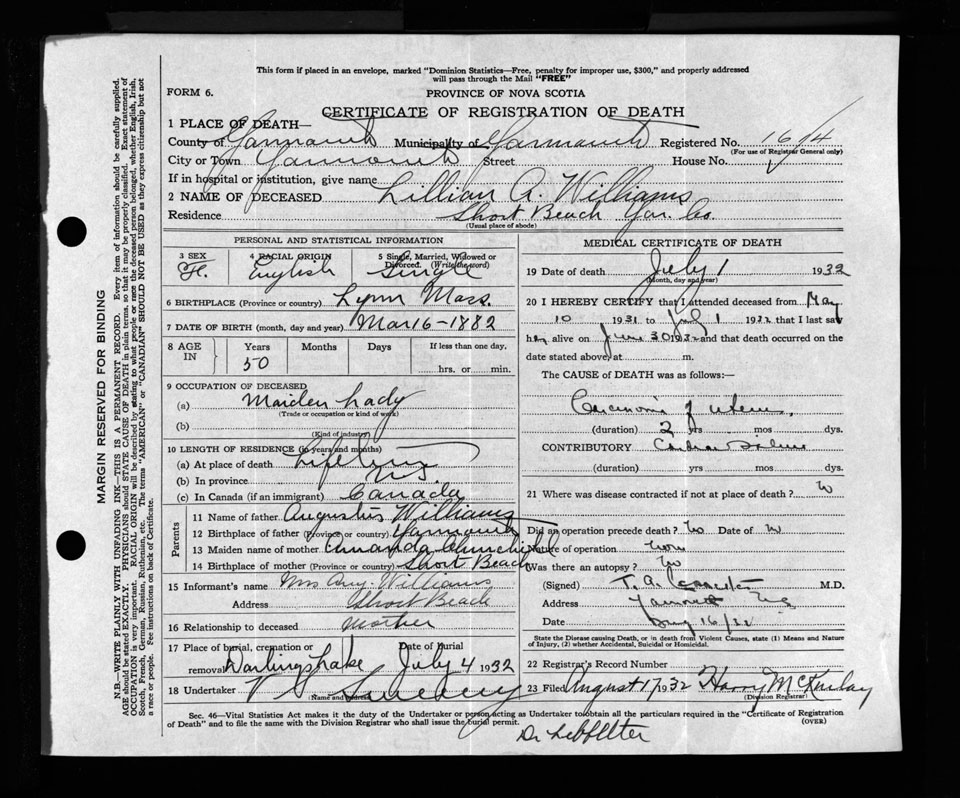 This form if placed in an envelope, marked "Dominion Statistics—Free, penalty for improper use, $300," and properly addressed
will pass through the Mail "FREE"
FORM 6.
PROVINCE OF NOVA SCOTIA
CERTIFICATE OF REGISTRATION OF DEATH
1 PLACE OF DEATH—
County of Yarmouth Municipality of Yarmouth Registered No. 1614
(For use of Registrar General only)
City or Town Yarmouth Street House No.
If in hospital or institution, give name
2 NAME OF DECEASED Lillian A. Williams
Residence Short Beach Yar. Co.
(Usual place of abode)
PERSONAL AND STATISTICAL INFORMATION
3 SEX F. 4 RACIAL ORIGIN English 5 Single, Married, Widowed or Divorced. (Write the word) Single
6 BIRTHPLACE (Province or country) Lynn Mass.
7 DATE OF BIRTH (month, day and year) Mar 16-1882
8 AGE IN Years Months Days If less than one day,
50 hrs. or min.
9 OCCUPATION OF DECEASED
(a) Maiden Lady
(Trade or occupation or kind of work)
(b)
(Kind of industry)
10 LENGTH OF RESIDENCE (in years and months)
(a) At place of death Life time
(b) In province N.S.
(c) In Canada (if an immigrant) Canada
Parents
11 Name of father Augustus Williams
12 Birthplace of father (Province or country) Yarmouth
13 Maiden name of mother Amanda Churchill
14 Birthplace of mother (Province or country) Short Beach
15 Informant's name Mrs Aug. Williams
Address Short Beach
16 Relationship to deceased Mother
17 Place of burial, cremation or removal Darlings Lake Date of Burial July 4 1932
18 Undertaker V. S. Sweeny
(Name and address)
MEDICAL CERTIFICATE OF DEATH
19 Date of death July 1 1932
(Month, day and year)
20 I HEREBY CERTIFY that I attended deceased from May
10 1931 to July 1 1932 that I last saw
her alive on June 30 1932 and that death occurred on the
date stated above, at m.
The CAUSE of DEATH was as follows:—
Carcinoma of uterus.
(duration) 2 yrs mos dys.
CONTRIBUTORY Cardiac Failure
(duration) yrs mos dys.
21 Where was disease contracted if not at place of death?
Did an operation precede death? No Date of
Nature of operation
Was there an autopsy? No
(Signed) T. A. M.D.
Address Yarmouth N.S.
Date Aug 16/32
State the Disease causing Death, or in death from Violent Causes, state (1) Means and Nature
of Injury, (2) whether Accidental, Suicidal or Homicidal.
22 Registrar's Record Number
23 Filed August 17 1932 Harry McKinlay
(Division Registrar)
Sec. 46—Vital Statistics Act makes it the duty of the Undertaker or person acting as Undertaker to obtain all the particulars required in the "Certificate of Registration
of Death" and to file the same with the Division Registrar who shall issue the burial permit. (OVER)
Dr
MARGIN RESERVED FOR BINDING
N.B.—WRITE PLAINLY WITH UNFADING INK—THIS IS A PERMANENT RECORD. Every item of information should be carefully supplied.
AGE should be stated EXACTLY. PHYSICIANS should STATE CAUSE OF DEATH in plain terms, so that it may be properly classified. Exact statement of
OCCUPATION is very important. RACIAL ORIGIN will be described by stating to what people or race the deceased person belonged, whether English, Irish,
Scotch, French, German, Russian, Ruthenian, etc. The terms "AMERICAN" or "CANADIAN" SHOULD NOT BE USED as they express citizenship but not
a race or people. See instructions on back of Certificate.